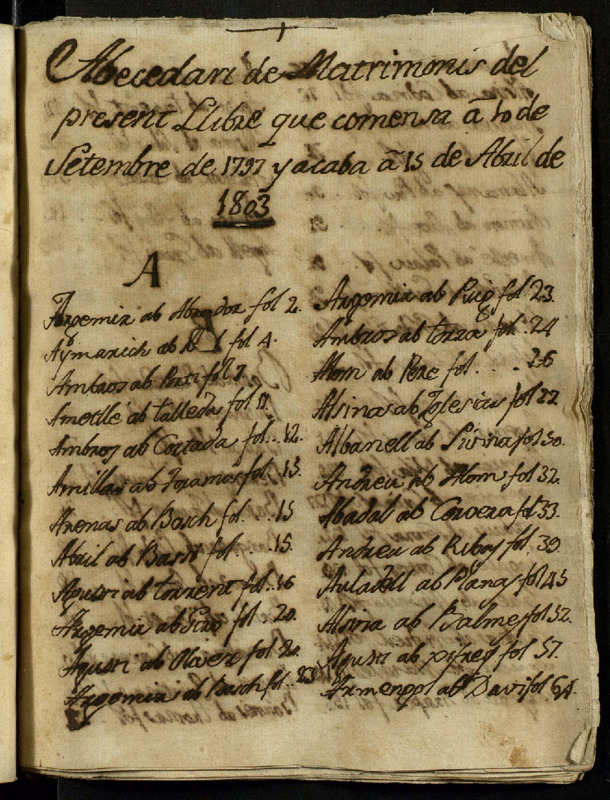 Abecedari de Matrimonis del
present Llibre que comensa â 10 de
Setembre de 1797 y acaba â 15 de Abril de
1803
A
Argemir ab Abrador fol 2.
Aymarich ab fol 4.
Ambros ab Porti fol 7.
Ametlle ab talleda fol 11
Ambros ab Cortada fol. 12.
Amillas ab fol. 13.
Arenas ab Bosch fol. 15
Abril ab Bassi fol. 15.
Agusti ab torrent fol. 16
Argemir ab fol. 20.
Agusti ab Oliver fol 20.
Argemir ab Bosch fol. 23
Argemir ab Puig fol 23.
Ambros ab torra fol. 24
Alom ab Pere fol . . . 26
Alsinas ab Iglesias fol 22
Albanell ab fol 30.
Andreu ab Alom fol 32.
Abadal ab Corvera fol 33.
Andreu ab Ribas fol. 39
Auladell ab Planas fol 45
Alsina ab Balmes fol 52.
Agusti ab Xifrey fol 57.
Armengol ab Davi fol 64